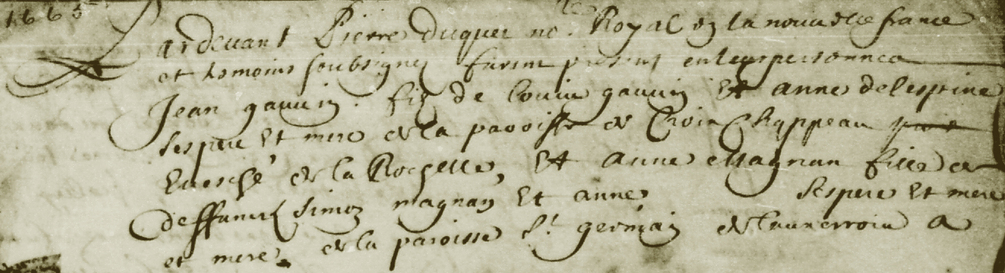 1665
Pardevant Pierre duquet no.re Royal en la nouvelle france
et temoins soubsignez furent presens en leurs personnes
Jean gauvin fils de Louis gauvin Et anne delespine
ses pere Et mere de la paroisse de Croix Chappeau
Evesché de la Rochelle, Et anne Magnan fille de
deffunct Simon magnan Et anne ses pere Et mere
et mere de la paroisse St. germain de lauxerrois a